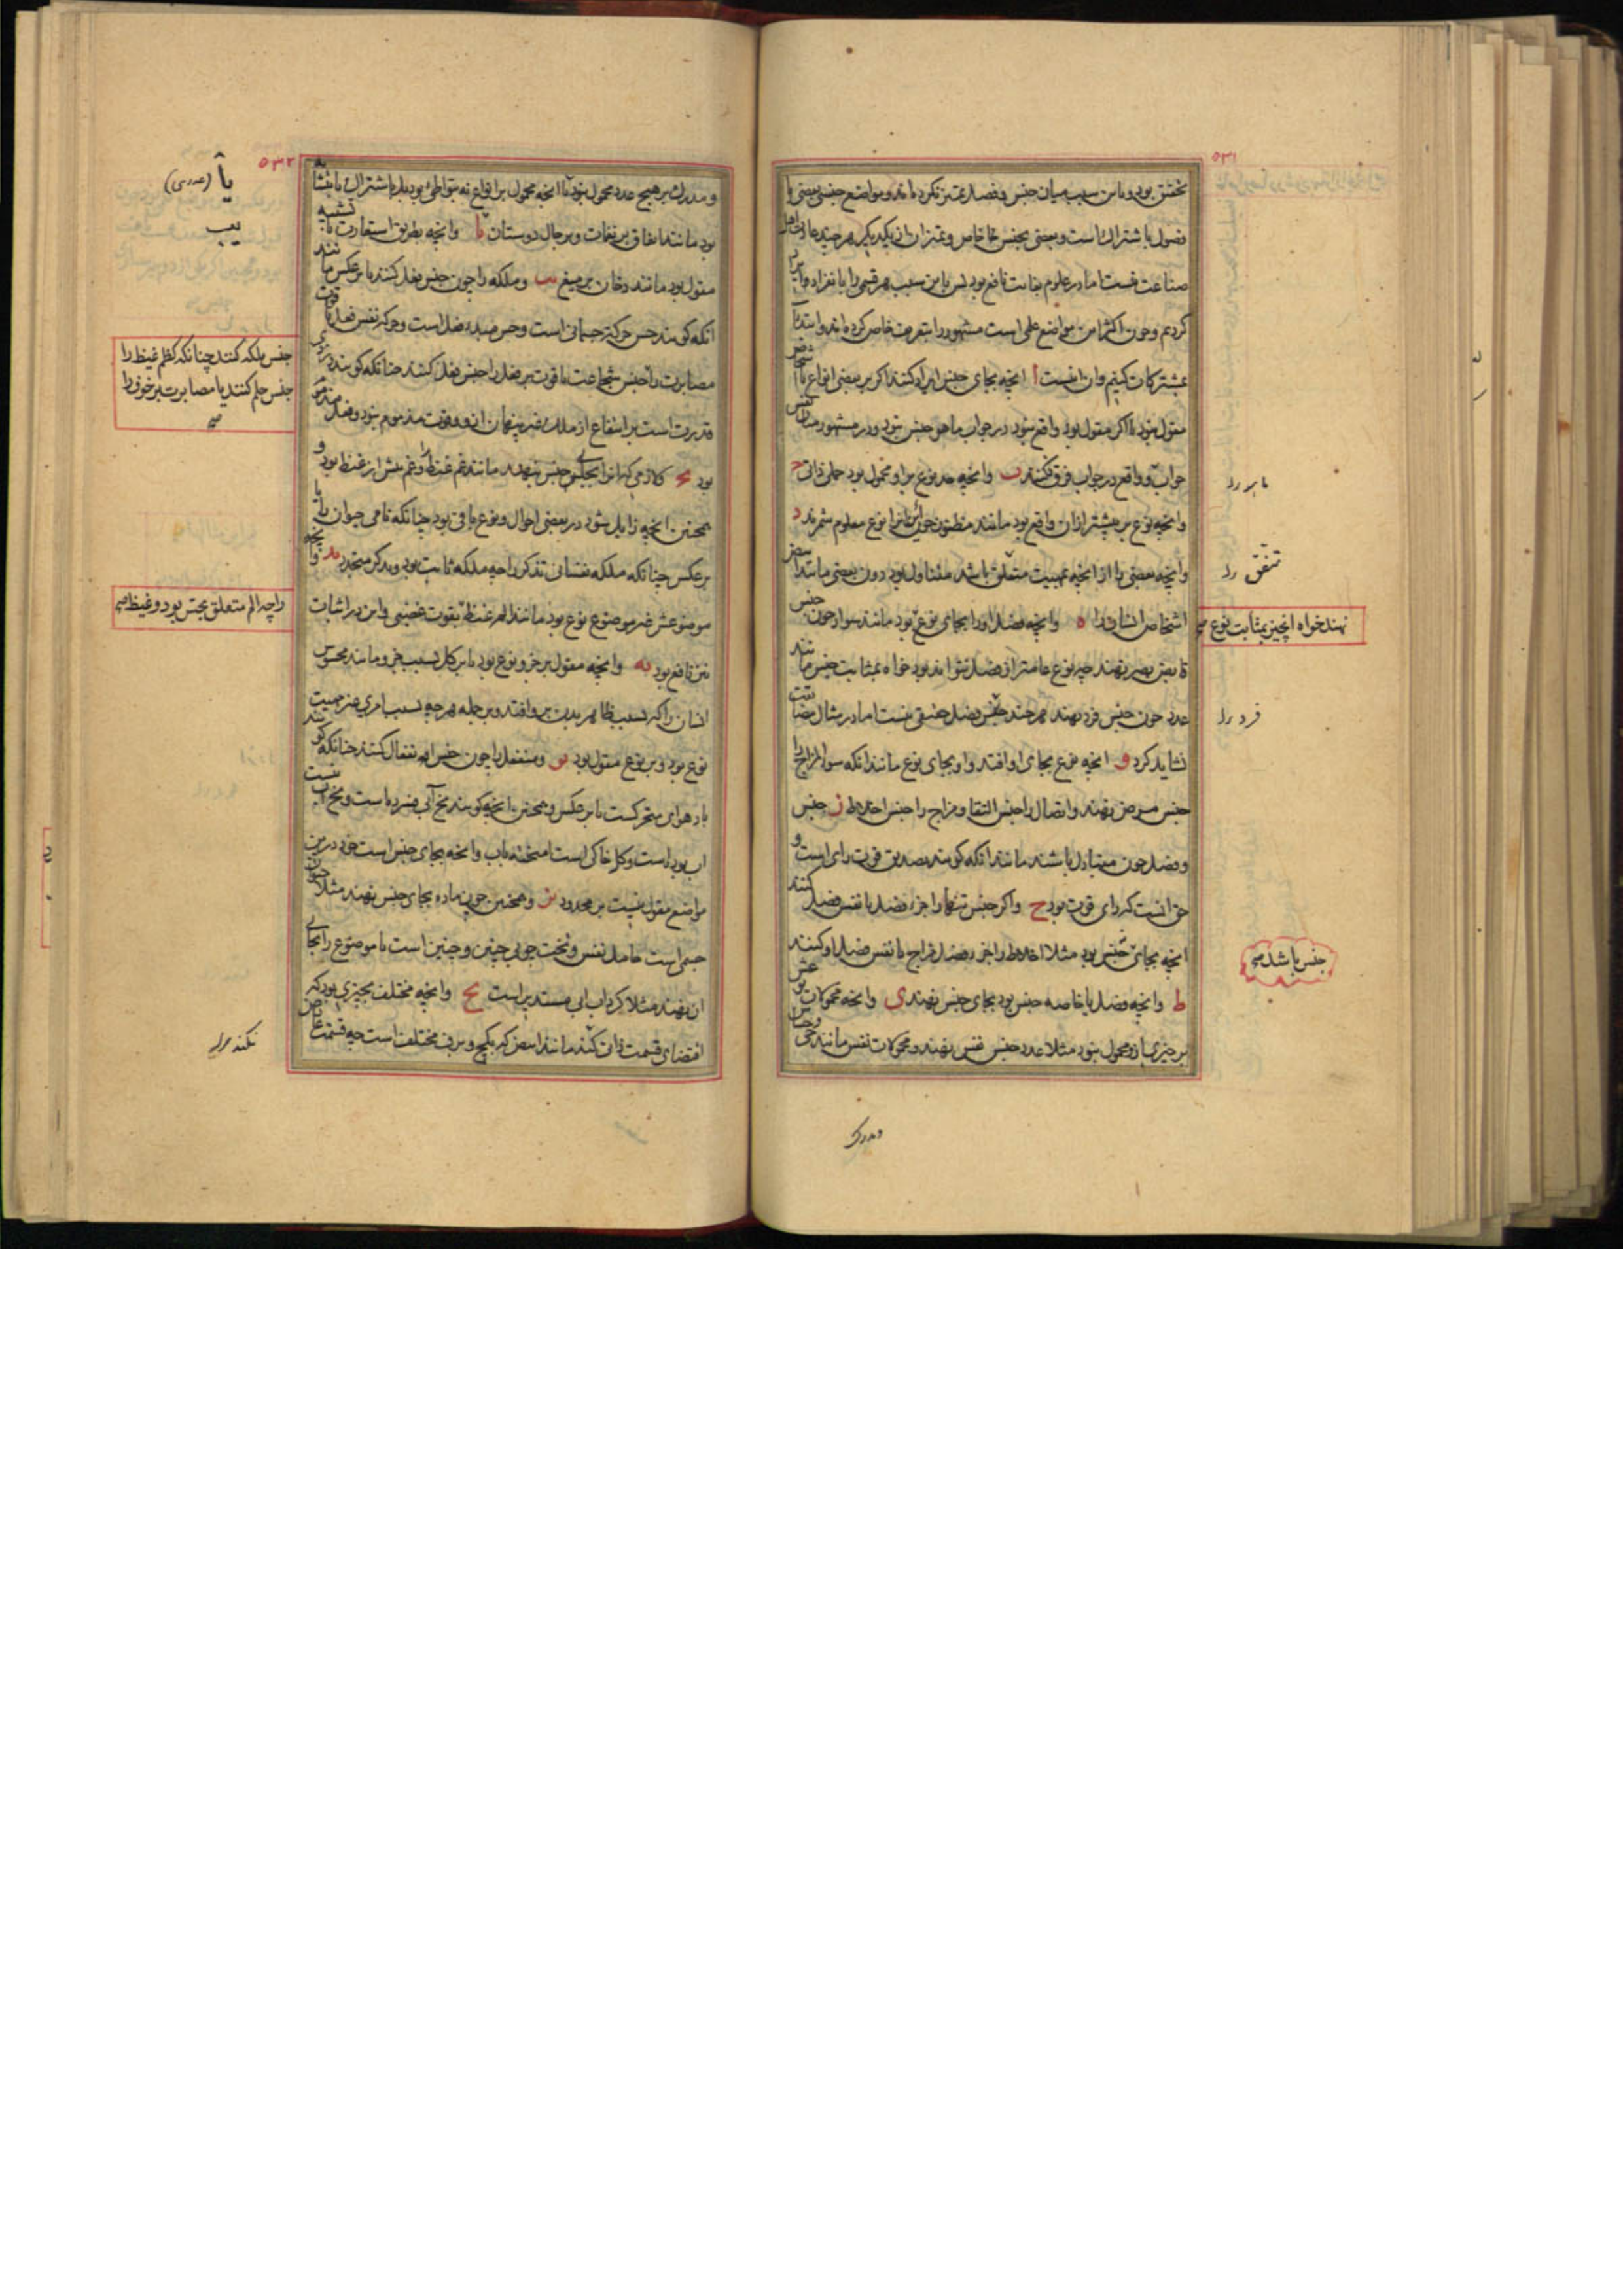 ٥٣١
تحقیق بود و باین سبب میان جنس و فصل تمیز نکرده‌اند و مواضع جنس بعضی با
فصول باشتراک است و بعضی بجنس خاص و تمیز آن از یکدیگر هر چند عادت اهل
صناعت نیست اما در علوم بغایت نافع بود پس باین سبب هر قسمی را بانفراد ایراد
کردیم و چون اکثر این مواضع علمی است مشهور را بتعریف خاص کرده‌اند و ابتدا
بمشترکات کنیم و آن اینست ا آنچه بجای جنس ایراد کنند اگر بر بعضی انواع یا اشخاص
مقول نبود یا اگر مقول بود واقع نبود در جواب ماهو جنس نبود و در مشهور میان نفس
جواب و واقع در جواب فرق نکنند ب و آنچه حد نوع بر او محمول بود حملی ذاتی ج
و آنچه نوع بر بیشتر از آن واقع بود مانند مظنون چون آنرا نوع معلوم شمرند د
و آنچه بعضی را از آنچه بمهیت متفق باشد متناول بود دون بعضی مانند ابیض
اشخاص انسان را ه و آنچه فصل او را بجای نوع بود مانند سواد چون جنس
قابض بصر نهند چه نوع عامتر از فصل نتواند بود خواه بمثابت جنس مانند
عدد چون جنس فرد نهند هر چند جنس فصل حقیقی نیست اما در مثال مضایقت
نشاید کرد و آنچه نوع بجای او افتد و او بجای نوع مانند آنکه سوء المزاج را
جنس مرض نهند و اتصال را جنس التقا و مزاج را جنس اختلاط ز جنس
و فصل چون متبادل باشند مانند آنکه گویند تصدیق قوت رای است و
حق آنست که رای قوت بود ح و اگر جنس تنها را جزء فصل یا نفس فصل کنند
آنچه بجای جنس بود مثلا اختلاط را جزء فصل مزاج یا نفس فصل او کنند
ط و آنچه فصل یا خاصه جنس بود بجای جنس نهند ی و آنچه محمولات
بر چیزی بازو محمول نبود مثلا عدد جنس نفس نهند و محمولات نفس مانند حی
نهند خواه آنچیز بمثابت نوع صح
متفق
فرد
جنس باشد صح
ومدرک
٥٣٢
و مدرک بر هیچ عدد محمول نبود یا آنچه محمول بر انواع نه بتواطؤ بود بل باشتراک یا بتشابه
بود مانند اتفاق بر نغمات و بر حال دوستان یا و آنچه بطریق استعارت یا تشبیه
مقول بود مانند دخان بر میغ یب و ملکه را چون جنس فعل کنند یا بر عکس مانند
آنکه گویند حس حرکة جسمانی است و حس مبدء فعل است و حرکة نفس فعل یا قوت
مصابرت را جنس شجاعت یا قوت بر فعل را جنس فعل کنند چنانکه گویند دزدی
قدرت است بر انتفاع از ملک غیر پنهان ازو و قوت مذموم نبود و فعل مذموم
بود یج و لازمی که آنرا بجای جنس بنهند مانند غم غیظ را و غم پیش از غیظ بود و
همچنین آنچه زایل شود در بعضی احوال و نوع باقی بود چنانکه نامی حیوان را یا
بر عکس چنانکه ملکه نفسانی تذکر را چه ملکه ثابت بود و تذکر متجدد ید و آنچه
موضوعش غیر موضوع نوع بود مانند الم غیظ بقوت غضبی و این در اثبات
نیز نافع بود یه و آنچه مقول بر جزو نوع بود یا بر کل بسبب جزو مانند محسوس
انسان را که بسبب ظاهر بدن برو افتد و بر جمله هر چه بسبب امری جز مهیت
نوع بود و بر نوع مقول بود یو و منفعل را چون جنس انفعال کنند چنانکه گویند
باد هوای متحرکست یا بر عکس و همچنین آنچه گویند یخ آبی فسرده است و یخ آب نیست
آب بوده است و گل خاکی است آمیخته باب و آنچه بجای جنس است خود درین
مواضع مقول نیست بر محدود یز و همچنین چون ماده بجای جنس نهند مثلا حیوان
جسمی است حامل نفس و تخت چوبی چنین و چنین است یا موضوع را بجای
آن نهند مثلا گرداب آبی مستدیر است یح و آنچه مختلف بچیزی بود که
اقتضای قسمت ذات نکند مانند ابیض که بگچ و برف مختلف است چه قسمت
یا
یب
جنس ملکه کنند چنانکه کظم غیظ را
جنس حلم کنند یا مصابرت بر خوف را
صح
را چه الم متعلق بحس بود و غیظ صح
نکند